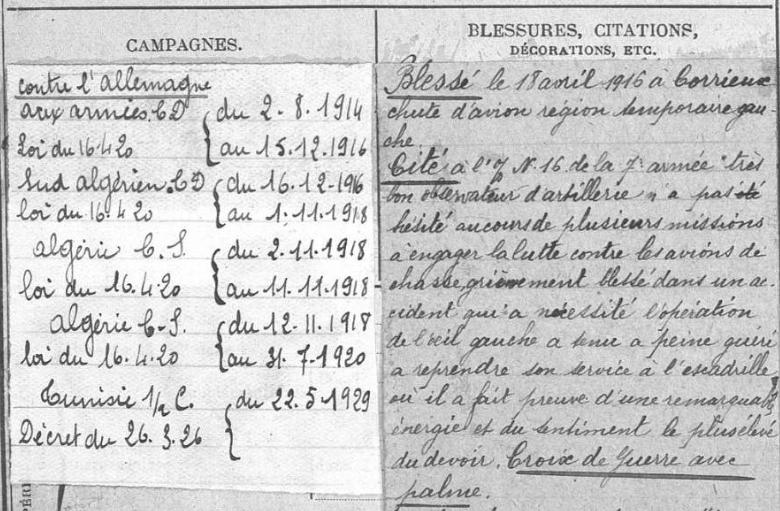 CAMPAGNES.
contre l'allemagne
aux armées. C D du 2. 8. 1914
Loi du 16.4.20 au 15.12.1916
Sud algérien. C D du 16.12.1916
loi du 16.4.20 au 1.11.1918
algérie C. S. du 2.11.1918
loi du 16.4.20 au 11.11.1918
algérie C. S. du 12.11.1918
loi du 16.4.20 au 31.7.1920
Tunisie 1/2 C. du 22.5.1929
Décret du 26.3.26
BLESSURES, CITATIONS,
DÉCORATIONS, ETC.
Blessé le 18 avril 1916 à Corrieux
chute d'avion région temporaire gau
che.
Cité à l'O/ N. 16 de la 7e armée "très
bon observateur d'artillerie n'a pas été
hésité au cours de plusieurs missions
à engager la lutte contre les avions de
chasse, grièvement blessé dans un ac-
cident qui a nécessité l'opération
de l'œil gauche a tenu a peine guéri
a reprendre son service à l'escadrille
où il a fait preuve d'une remarquable
énergie et du sentiment le plus élevé
du devoir. Croix de Guerre avec
palme.